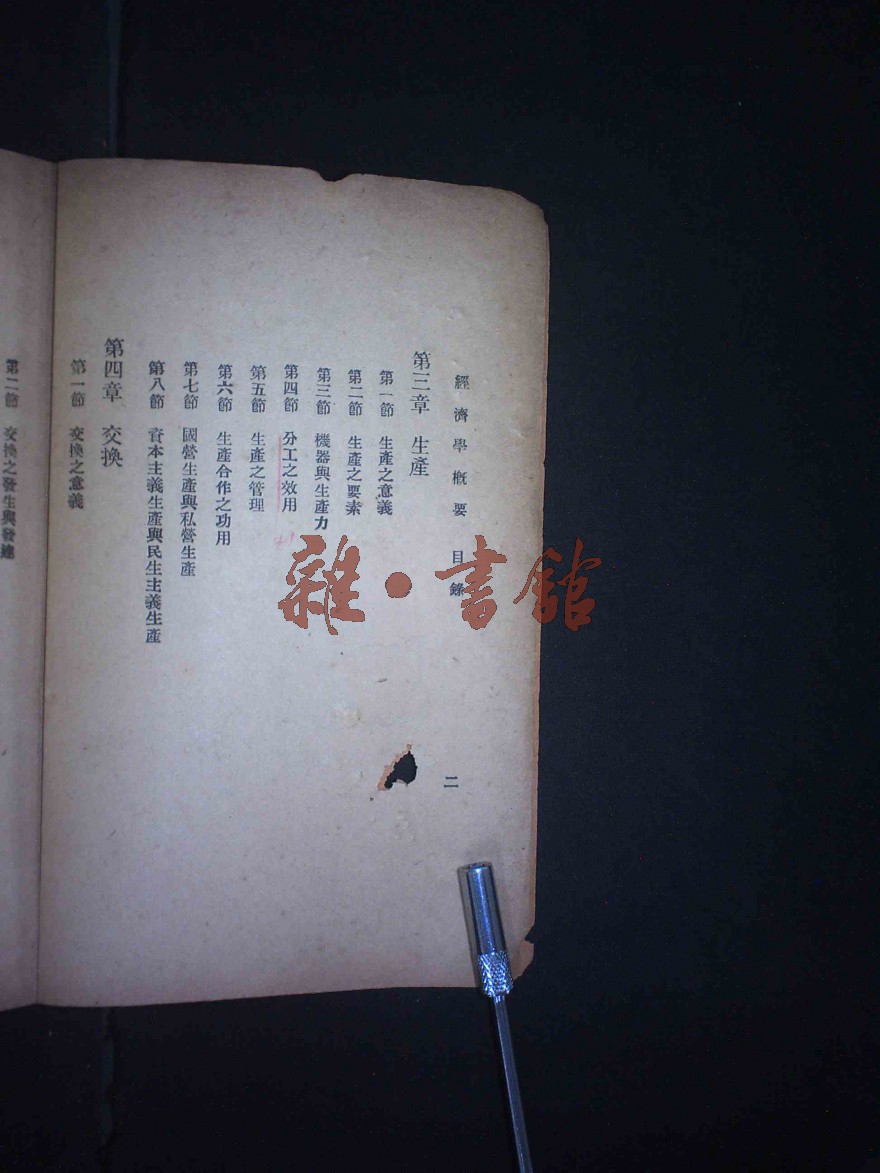 經濟學概要 目錄 二
第三章 生產
第一節 生產之意義
第二節 生產之要素
第三節 機器與生產力
第四節 分工之效用
第五節 生產之管理
第六節 生產合作之功用
第七節 國營生產與私營生產
第八節 資本主義生產與民生主義生產
第四章 交換
第一節 交換之意義
第二節 交換之發生與發達
雜·書館